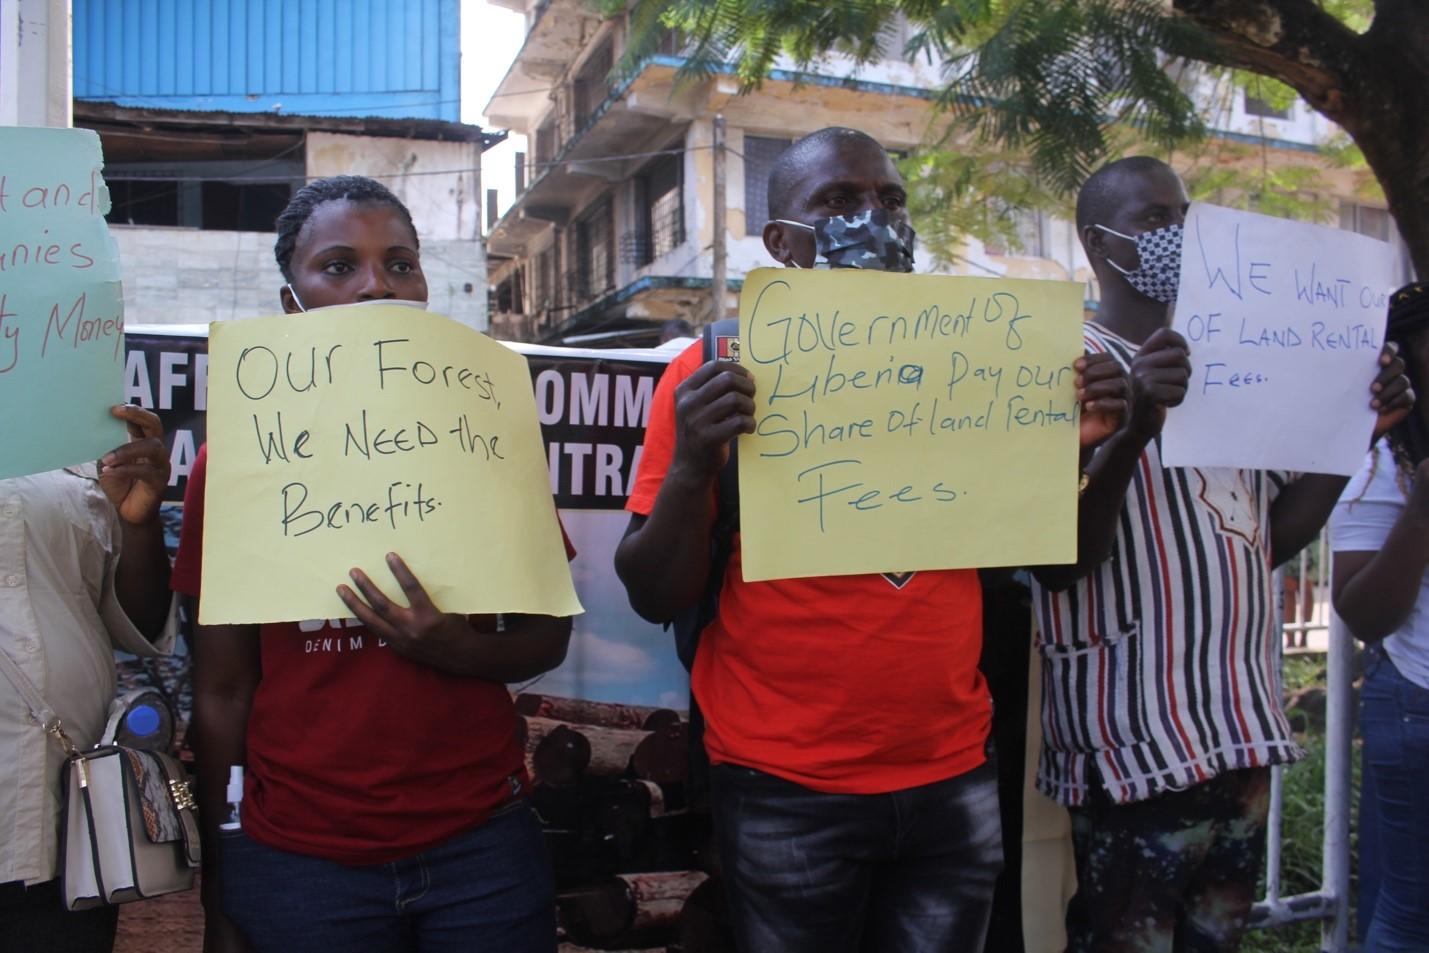 t and
nies
ty Money
AFF
OMM
NTRA
OUr Forest,
We NEED the
Benefits.
DENIM D
Government Of
Liberia Pay our
Share Of land rental
Fees.
WE WANT OUR
OF LAND RENTAL
FEES.